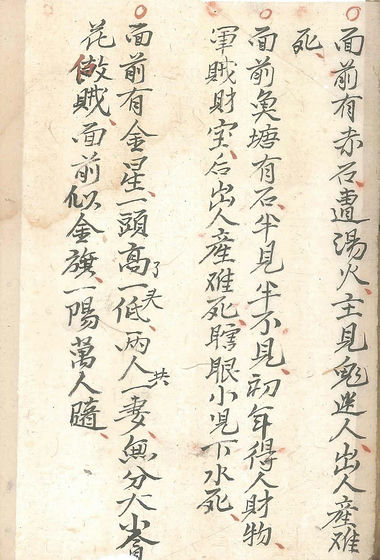 面前有赤石遭湯火主見鬼迷人出人產难
死
面前魚塘有石半見半不見初年得人財物
軍賊財宝后出人產难死瞎眼小児下水死
面前有金星一頭高了一低両人共一妻無分大小
花做賊面前似金旗一陽萬人